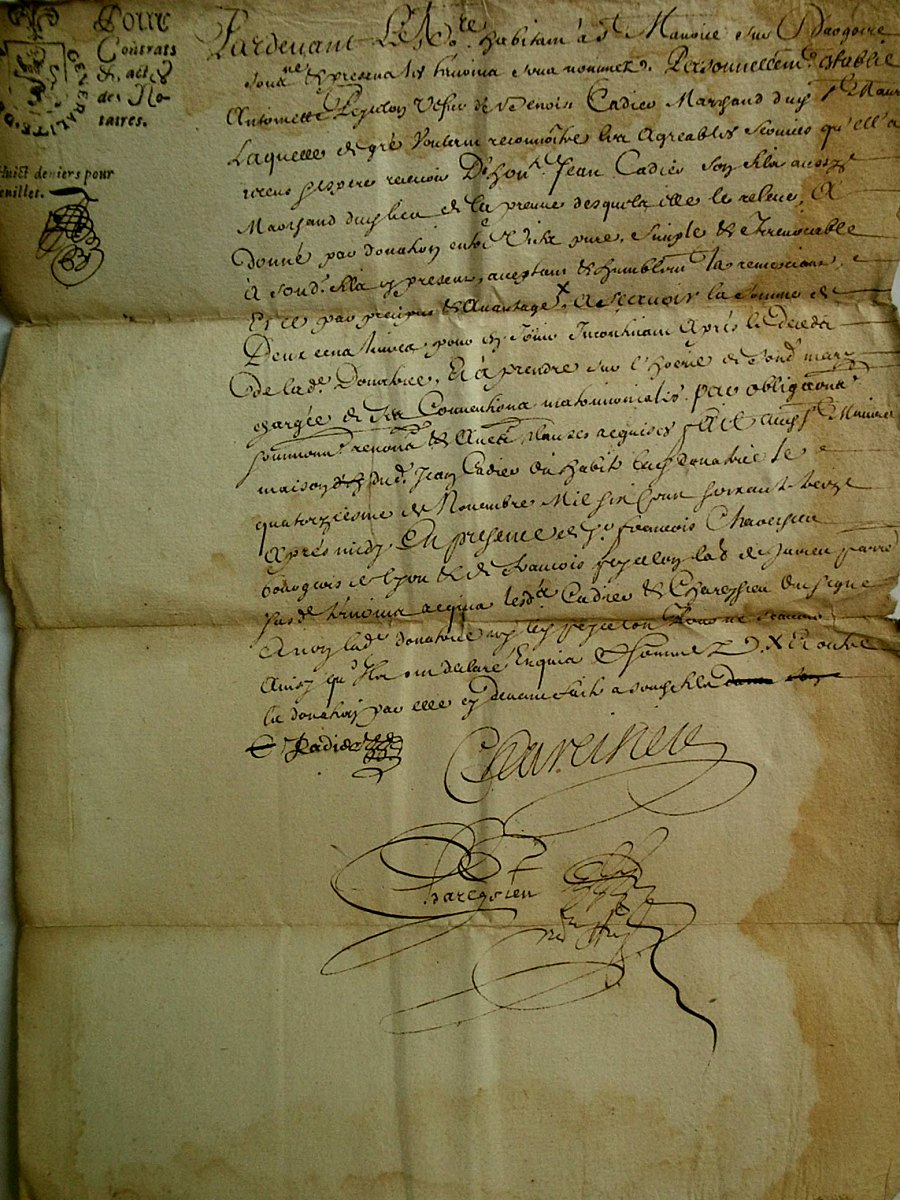 Pour
Contrats
& actes
des No-
taires.
GENERALITE D
Huict deniers pour
feuillet.
Pardevant Le No.re habitant à St Maurice sur Dargoire
soubz.né & presens les tesmoins sous nommez. Personnellem.t establie
Antoinette Pejulon vefve de Benoist Cadier Marchand dud St Maurice
Laquelle de gré voulant reconnoitre les agreables services qu'ell'a
receus espere recevoir De hon.t Jean Cadier son fils aussy
Marchand dud lieu de la preuve desquels elle le releve, A
donné par donation entre vifz pure, simple & Irrevocable
à sond. fils cy present, acceptant & humblem.t la remerciant,
Et ce par precipu & advantage X A sçavoir la somme de
Deux cens livres pour en Jouir Incontinant Après le decedz
De lad.e Donatrice, Et à prendre sur l'hoirie de sond mary
chargée de ses Conventions matrimonialles par obligaons
soumissions renons & autres clauses requises fait aud St Maurice
maison dud. Jean Cadier où habite lad donatrice le
quatorziesme de Novembre Mil six cens soixante treze
après midy En presence de sr francois Chareysieu
bourgeois de Lyon & de francois pejulon lab de
par.e tesmoins requis lesd. Cadier & Chareysieu ont signé
& non lad.e donatrice ny led pejulon Pour ne scavoir
Ainsy qu'Ils ont declaré Enquis & sommez X Et outre
la donation par elle cy devant faite a sond fils
Cadier
Chareisieu
Chareysieu